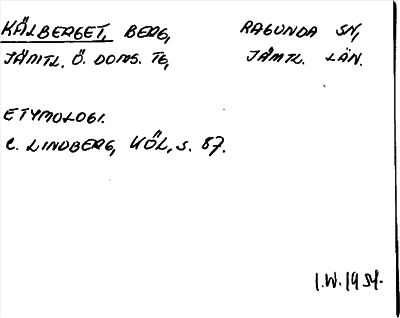 KÄLBERGET, BERG, RAGUNDA SN,
JÄMTL. Ö. DOMS. TG, JÄMTL. LÄN.
ETYMOLOGI.
C. LINDBERG, KÖL, S. 87.
I.W. 1954.